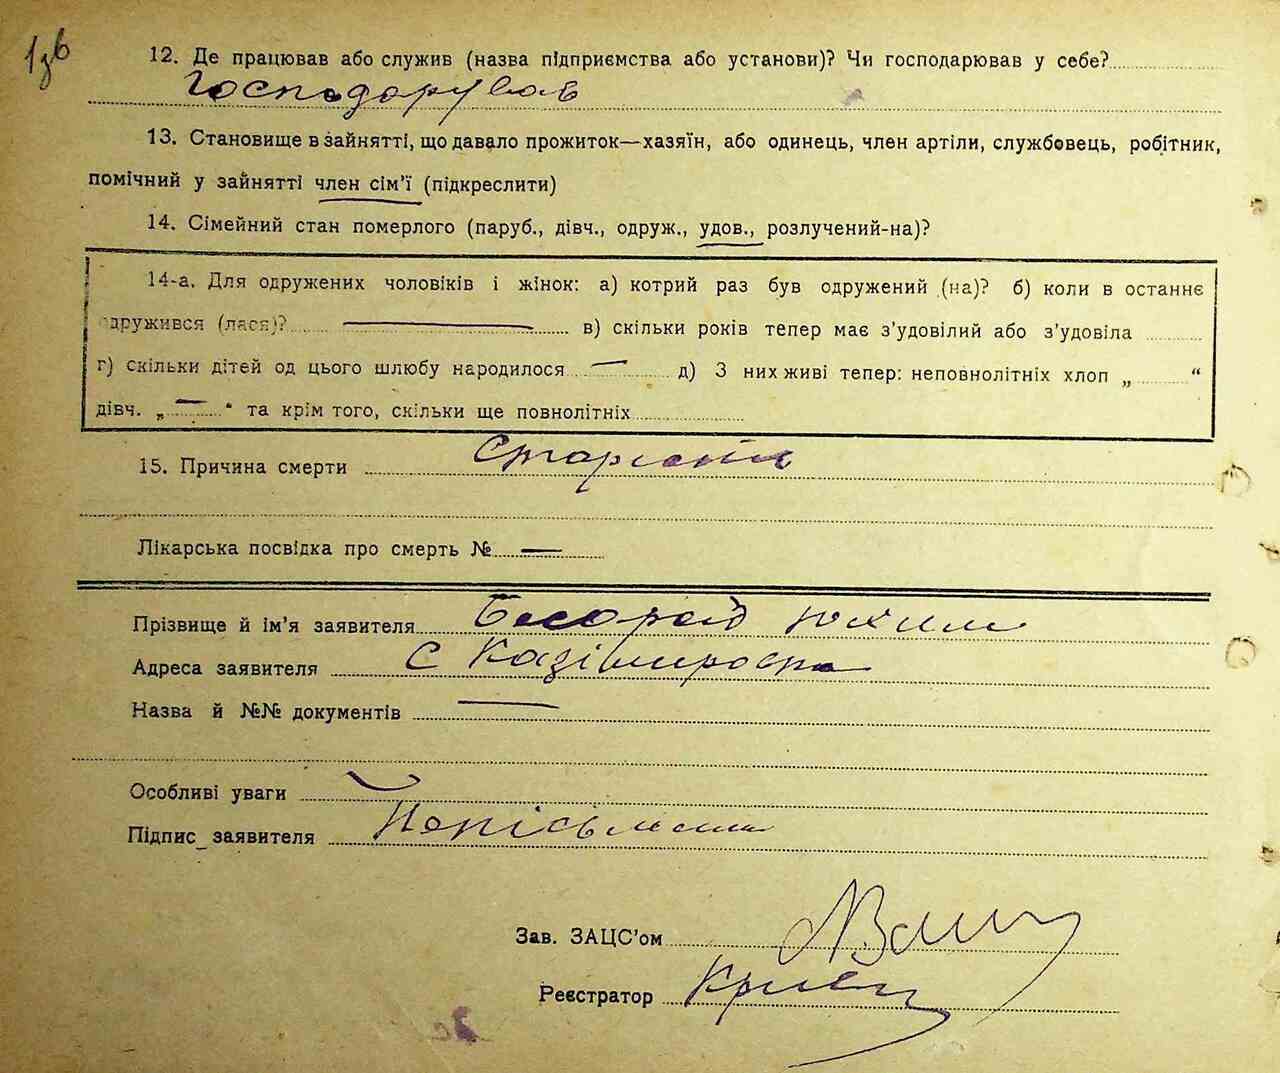 12. Де працював або служив (назва підприємства або установи)? Чи господарював у себе?
Господарував
13. Становище в зайнятті, що давало прожиток—хазяїн, або одинець, член артіли, службовець, робітник,
помічний у зайнятті член сім'ї (підкреслити)
14. Сімейний стан померлого (паруб., дівч., одруж., удов., розлучений-на)?
14-а. Для одружених чоловіків і жінок: а) котрий раз був одружений (на)? б) коли в останнє
одружився (лася)? — в) скільки років тепер має з'удовілий або з'удовіла
г) скільки дітей од цього шлюбу народилося — д) З них живі тепер: неповнолітніх хлоп „ “
дівч. „ — “ та крім того, скільки ще повнолітніх
15. Причина смерти Старість
Лікарська посвідка про смерть № —
Прізвище й ім'я заявителя Юхим
Адреса заявителя с Казімировка
Назва й №№ документів —
Особливі уваги
Підпис заявителя
Зав. ЗАЦС'ом
Реєстратор